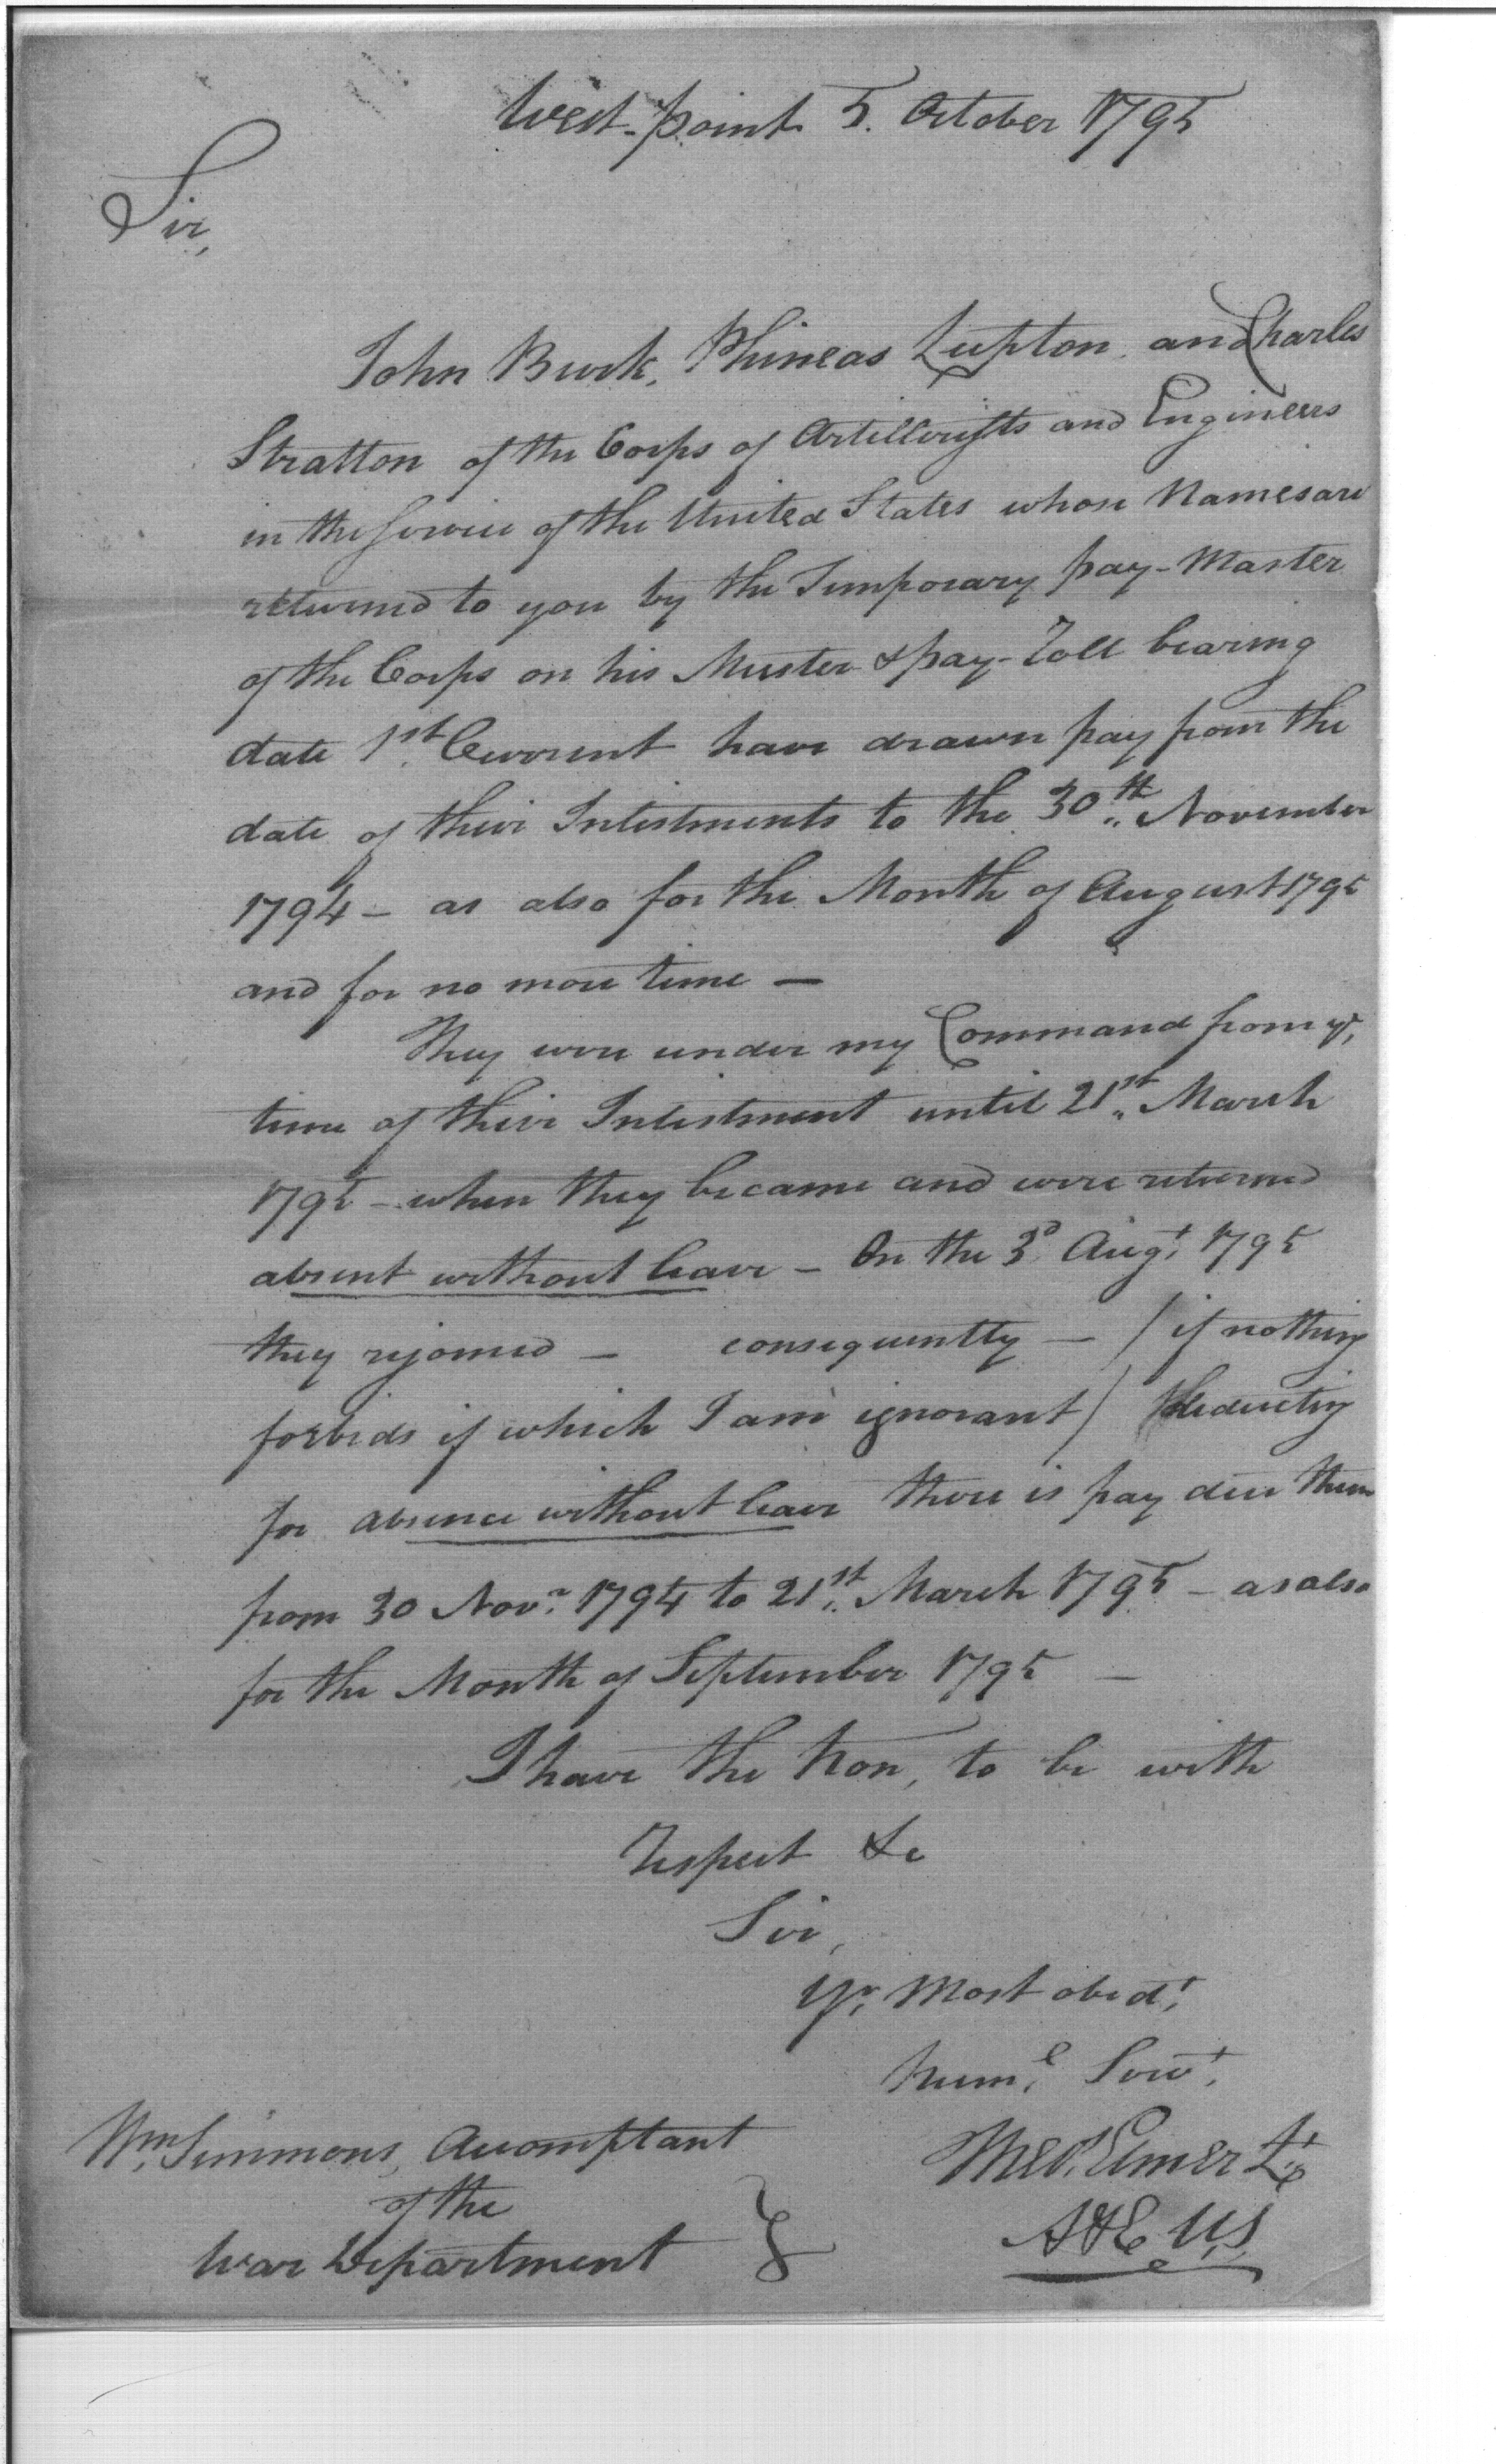 West-point 5. October 1795
Sir,
John Burk, Phineas Lupton and Charles
Stratton of the Corps of Artillerists and Engineers
in the service of the United States whose Names are
returned to you by the Temporary pay-Master
of the Corps on his Muster & pay-Roll bearing
date 1st Current have drawn pay from the
date of their Inlistments to the 30th November
1794 - as also for the Month of August 1795
and for no more time -
They were under my Command from ye
time of their Inlistment until 21st March
1795 - when they became and were returned
absent without leave - On the 3d Augt 1795
they rejoined - consequently - / if nothing
forbids of which I am ignorant / deducting
for absence without leave there is pay due them
from 30 Novr 1794 to 21st March 1795 - as also
for the Month of September 1795 -
I have the hon, to be with
respect &c
Sir,
Yr Most obedt
humle Servt
Wm Simmons, Accomptant
of the
War Department
Elmer Lt
A & E U S